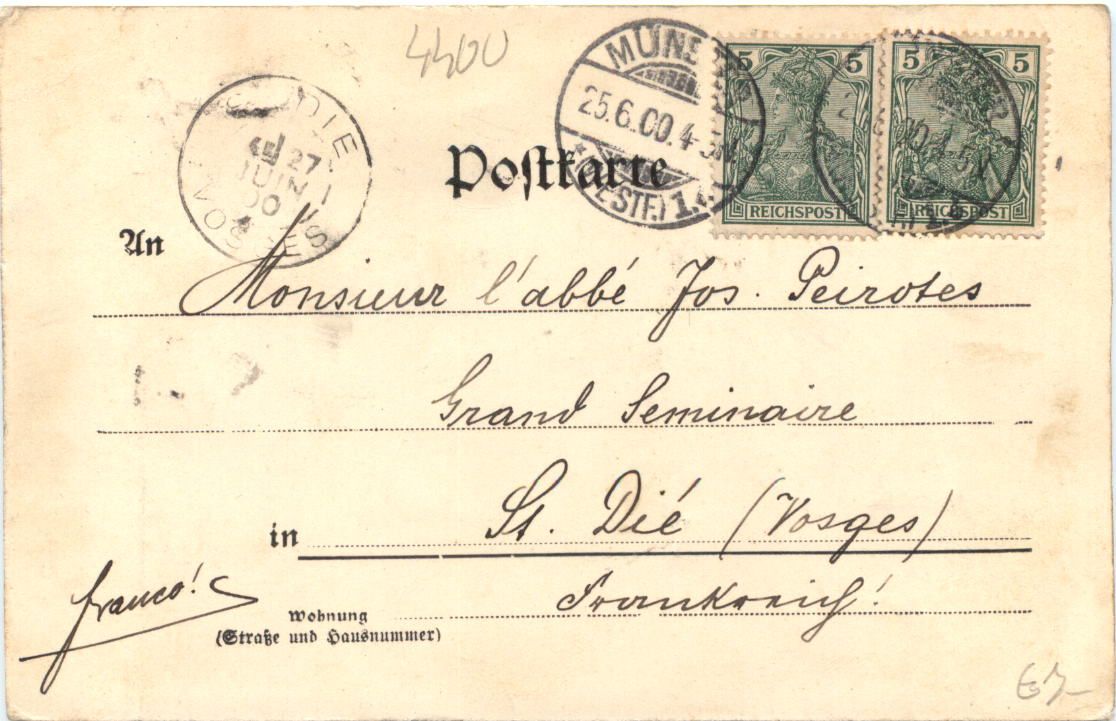 4400
MÜNS
25.6.00.4-5N.
*(WESTF.) 1.
5 5
REICHSPOST
5 5
REICHSPOST
DIE
27
JUIN
00
VOSGES
Postkarte
An
Monsieur l'abbé Jos. Peirotes
Grand Seminaire
in St. Dié (Vosges)
Frankreich!
franco!
Wohnung
(Straße und Hausnummer)